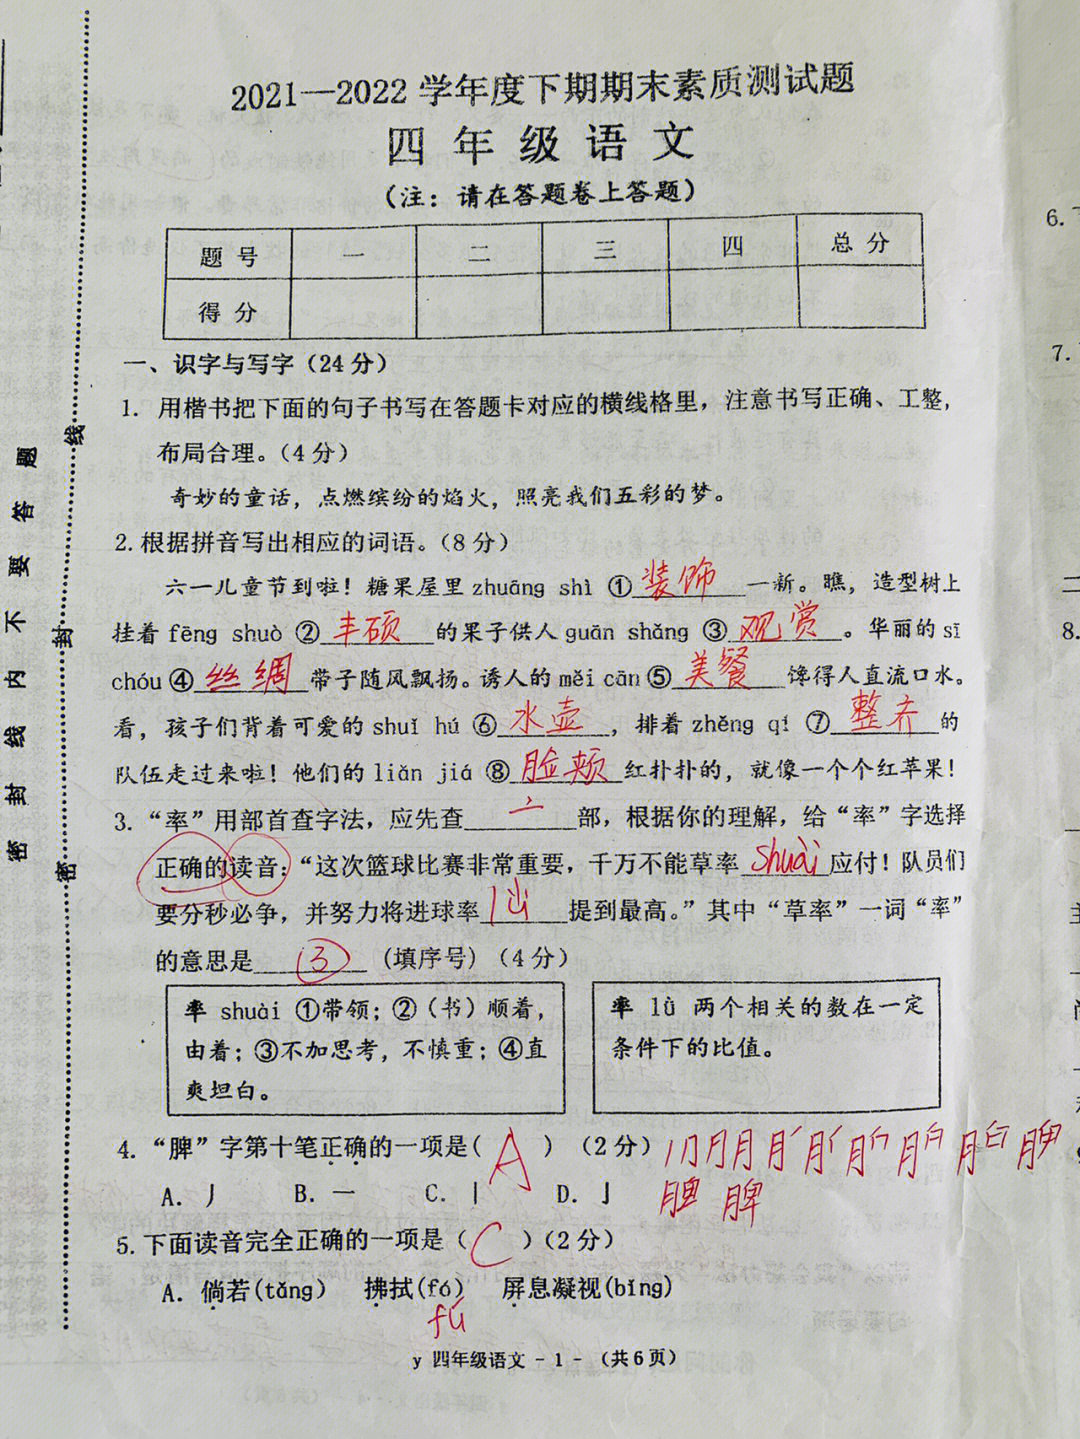 2021—2022 学年度下期期末素质测试题
四 年 级 语 文
(注：请在答题卷上答题)
题 号 一 二 三 四 总 分
得 分
一、识字与写字（24 分）
1. 用楷书把下面的句子书写在答题卡对应的横线格里，注意书写正确、工整，
布局合理。（4 分）
奇妙的童话，点燃缤纷的焰火，照亮我们五彩的梦。
2. 根据拼音写出相应的词语。（8 分）
六一儿童节到啦！糖果屋里 zhuāng shì ①装饰一新。瞧，造型树上
挂着 fēng shuò ②丰硕的果子供人 guān shǎng ③观赏。华丽的 sī
chóu ④丝绸带子随风飘扬。诱人的 měi cān ⑤美餐馋得人直流口水。
看，孩子们背着可爱的 shuǐ hú ⑥水壶，排着 zhěng qí ⑦整齐的
队伍走过来啦！他们的 liǎn jiá ⑧脸颊红扑扑的，就像一个个红苹果！
3. “率”用部首查字法，应先查亠部，根据你的理解，给“率”字选择
正确的读音：“这次篮球比赛非常重要，千万不能草率 shuài 应付！队员们
要分秒必争，并努力将进球率提到最高。”其中“草率”一词“率”
的意思是③（填序号）（4 分）
率 shuài ①带领；②（书）顺着，
由着；③不加思考，不慎重；④直
爽坦白。
率 lǜ 两个相关的数在一定
条件下的比值。
4. “脾”字第十笔正确的一项是（ A ）（2 分）
A. 丿 B. 一 C. 丨 D. 亅
脾
5. 下面读音完全正确的一项是（ C ）（2 分）
A. 倘若(tǎng) 拂拭(fó) 屏息凝视(bǐng)
fú
y 四年级语文 - 1 - （共 6 页）
密 封 线 内 不 要 答 题
密 封 线
6.
7.
二
8.